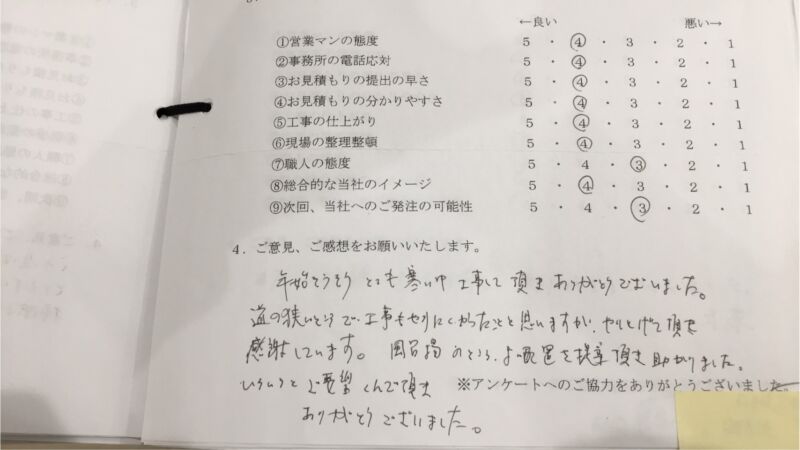 ←良い 悪い→
①営業マンの態度 5 ・ 4 ・ 3 ・ 2 ・ 1
②事務所の電話応対 5 ・ 4 ・ 3 ・ 2 ・ 1
③お見積もりの提出の早さ 5 ・ 4 ・ 3 ・ 2 ・ 1
④お見積もりの分かりやすさ 5 ・ 4 ・ 3 ・ 2 ・ 1
⑤工事の仕上がり 5 ・ 4 ・ 3 ・ 2 ・ 1
⑥現場の整理整頓 5 ・ 4 ・ 3 ・ 2 ・ 1
⑦職人の態度 5 ・ 4 ・ 3 ・ 2 ・ 1
⑧総合的な当社のイメージ 5 ・ 4 ・ 3 ・ 2 ・ 1
⑨次回、当社へのご発注の可能性 5 ・ 4 ・ 3 ・ 2 ・ 1
4．ご意見、ご感想をお願いいたします。
年始そうそう とても寒い中 工事して頂き ありがとうございました。
道の狭いところで、工事もやりにくかったことと思いますが、やりとげて頂き
感謝しています。 のところ、 配置を提案頂き助かりました。
いろいろと ご要望 くんで頂き ※アンケートへのご協力をありがとうございました。
ありがとうございました。